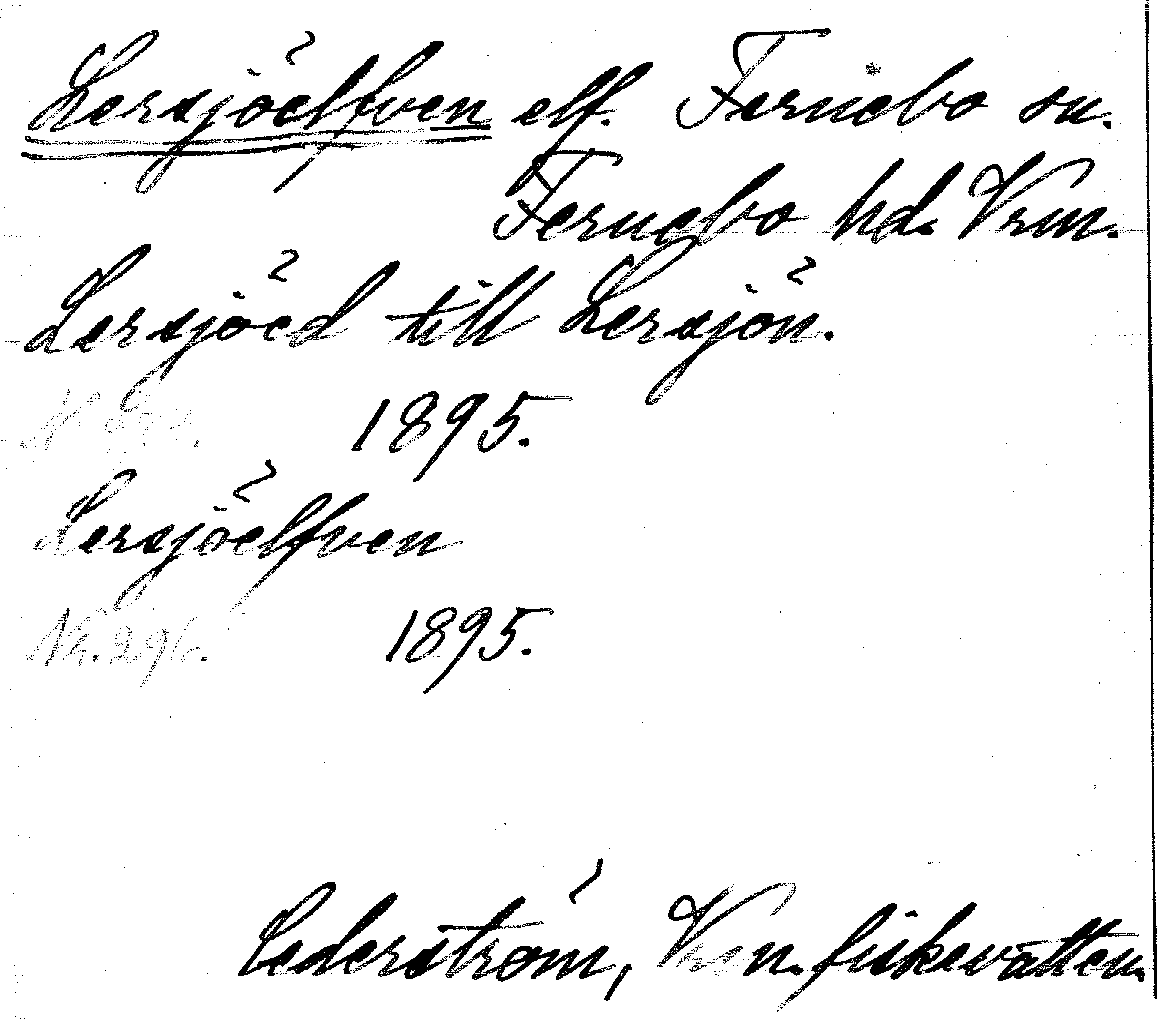 Lersjöelfven elf. Fernebo sn.
Fernebo hd. Vrm.
Lersjöed till Lersjön.
1895.
Lersjöelfven
Nr. 296. 1895.
Cederström, Vrm. fiskevatten.